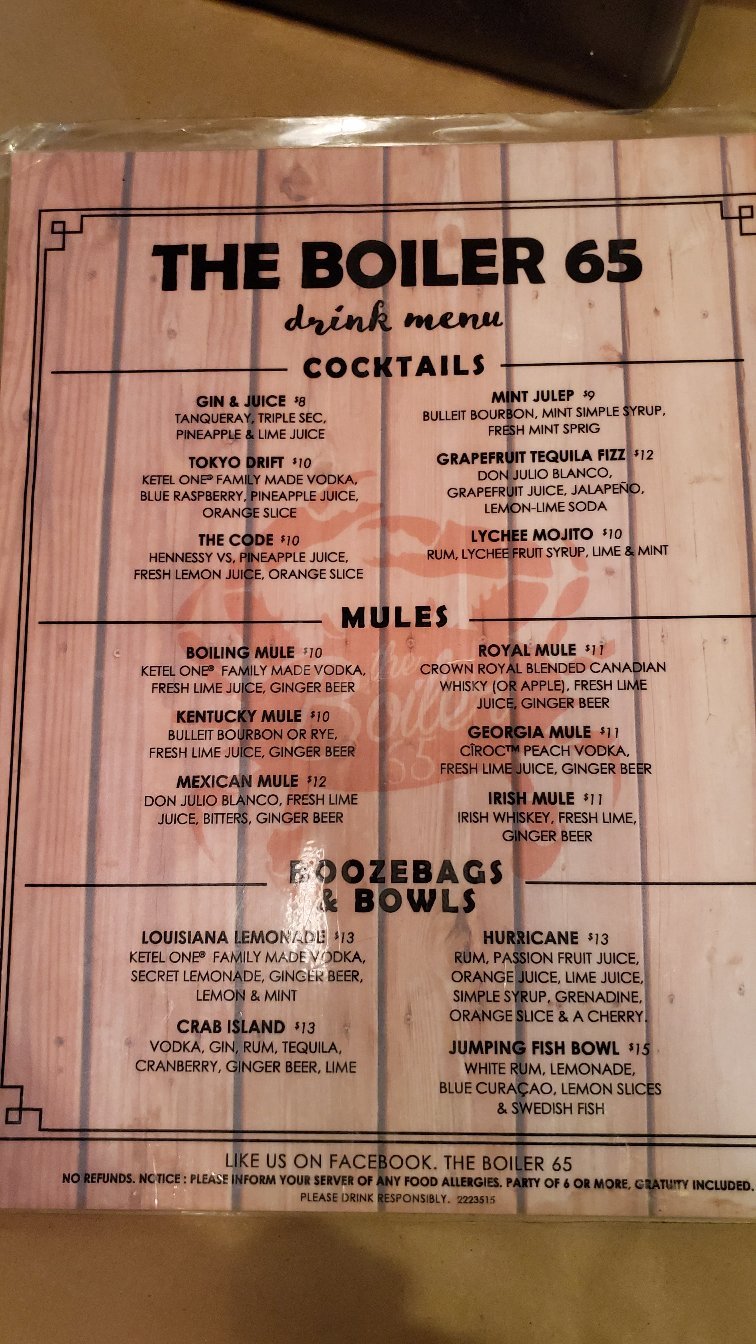 THE BOILER 65
drink menu
COCKTAILS
GIN & JUICE $8
TANQUERAY, TRIPLE SEC,
PINEAPPLE & LIME JUICE
TOKYO DRIFT $10
KETEL ONE® FAMILY MADE VODKA,
BLUE RASPBERRY, PINEAPPLE JUICE,
ORANGE SLICE
THE CODE $10
HENNESSY VS, PINEAPPLE JUICE,
FRESH LEMON JUICE, ORANGE SLICE
MINT JULEP $9
BULLEIT BOURBON, MINT SIMPLE SYRUP,
FRESH MINT SPRIG
GRAPEFRUIT TEQUILA FIZZ $12
DON JULIO BLANCO,
GRAPEFRUIT JUICE, JALAPEÑO,
LEMON-LIME SODA
LYCHEE MOJITO $10
RUM, LYCHEE FRUIT SYRUP, LIME & MINT
MULES
BOILING MULE $10
KETEL ONE® FAMILY MADE VODKA,
FRESH LIME JUICE, GINGER BEER
KENTUCKY MULE $10
BULLEIT BOURBON OR RYE,
FRESH LIME JUICE, GINGER BEER
MEXICAN MULE $12
DON JULIO BLANCO, FRESH LIME
JUICE, BITTERS, GINGER BEER
ROYAL MULE $11
CROWN ROYAL BLENDED CANADIAN
WHISKY (OR APPLE), FRESH LIME
JUICE, GINGER BEER
GEORGIA MULE $11
CÎROC™ PEACH VODKA,
FRESH LIME JUICE, GINGER BEER
IRISH MULE $11
IRISH WHISKEY, FRESH LIME,
GINGER BEER
the
Boiler
65
BOOZEBAGS
& BOWLS
LOUISIANA LEMONADE $13
KETEL ONE® FAMILY MADE VODKA,
SECRET LEMONADE, GINGER BEER,
LEMON & MINT
CRAB ISLAND $13
VODKA, GIN, RUM, TEQUILA,
CRANBERRY, GINGER BEER, LIME
HURRICANE $13
RUM, PASSION FRUIT JUICE,
ORANGE JUICE, LIME JUICE,
SIMPLE SYRUP, GRENADINE,
ORANGE SLICE & A CHERRY.
JUMPING FISH BOWL $15
WHITE RUM, LEMONADE,
BLUE CURAÇAO, LEMON SLICES
& SWEDISH FISH
LIKE US ON FACEBOOK. THE BOILER 65
NO REFUNDS. NOTICE : PLEASE INFORM YOUR SERVER OF ANY FOOD ALLERGIES. PARTY OF 6 OR MORE, GRATUITY INCLUDED.
PLEASE DRINK RESPONSIBLY. 2223515